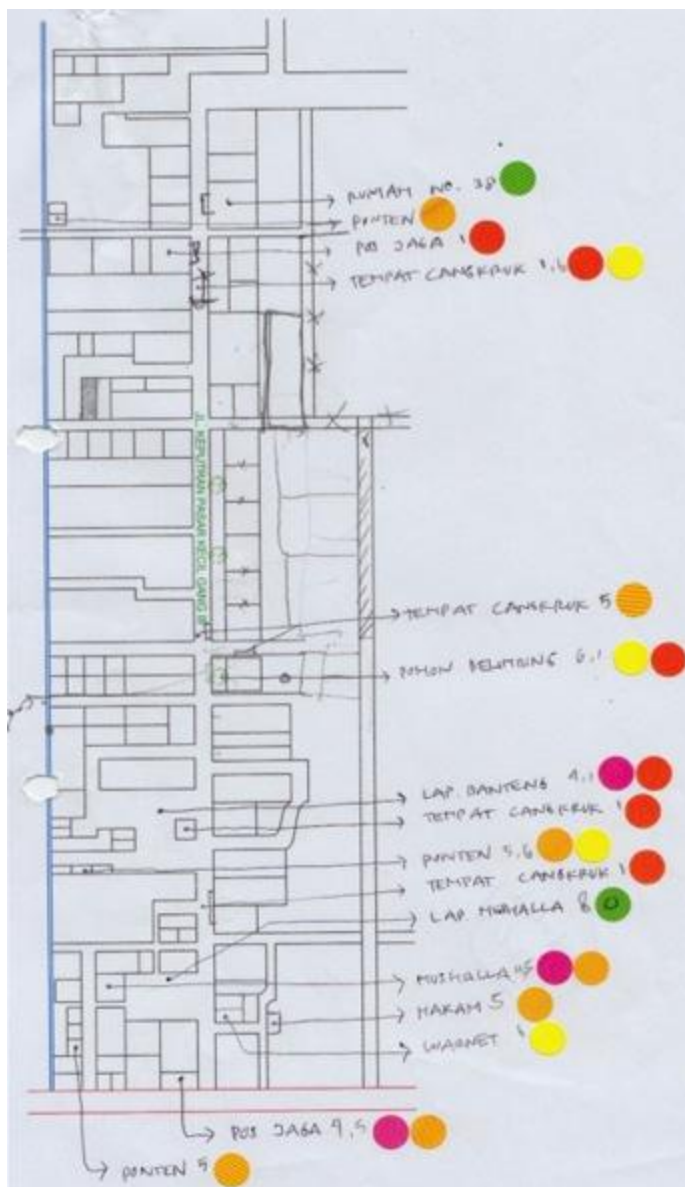 RUMAH NO. 38
PONTEN
POS JAGA 1
TEMPAT CANGKRUK 1,6
JL. KEPUTRAN PASAR KECIL GANG III
TEMPAT CANGKRUK 5
POHON BELIMBING 6,1
LAP. BANTENG 4,1
TEMPAT CANGKRUK 1
PONTEN 5,6
TEMPAT CANGKRUK 1
LAP MUSHALLA 8
MUSHALLA 4,5
MAKAM 5
WARNET
POS JAGA 4,5
PONTEN 5